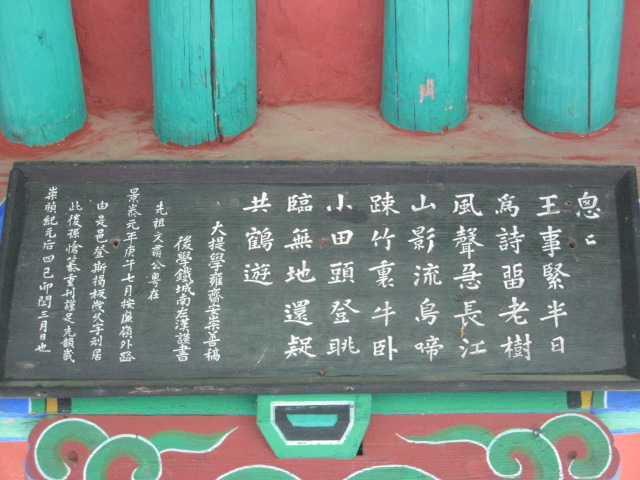 悤〻
王事緊半日
爲詩畱老樹
風聲急長江
山影流鳥啼
踈竹裏牛卧
小田頭登眺
臨無地還疑
共鶴遊
大提學雍齋安崇善稿
後學鐵城南左漢謹書
先祖文肅公粤在
景泰元年庚午七月按廉嶺外路
由是邑登斯揭板歲久字刓居
此後孫重刊謹足先韻歲
崇禎紀元后四己卯閏三月日也